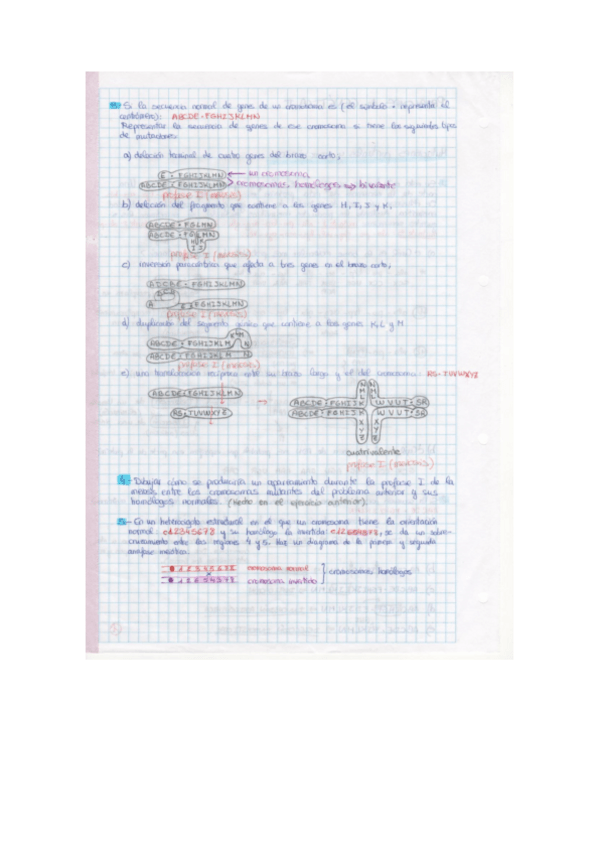 3.- Si la secuencia normal de genes de un cromosoma es (el símbolo • representa el
centrómero): ABCDE•FGHIJKLMN
Representar la secuencia de genes de ese cromosoma si tiene los siguientes tipos
de mutaciones:
a) delección terminal de cuatro genes del brazo corto;
E•FGHIJKLMN ← un cromosoma
ABCDE•FGHIJKLMN cromosomas homólogos bivalente
profase I (meiosis)
b) delección del fragmento que contiene a los genes H, I, J y K;
ABCDE•FGLMN
ABCDE•FGLMN
profase I (meiosis)
c) inversión paracéntrica que afecta a tres genes en el brazo corto;
•FGHIJKLMN
A E•FGHIJKLMN
profase I (meiosis)
d) duplicación del segmento que contiene a los genes K, L y M
ABCDE•FGHIJKLM N
ABCDE•FGHIJKL M N
profase I (meiosis)
e) una translocación recíproca entre su brazo largo y el del cromosoma: RS•TUVWXYZ
ABCDE•FGHIJKLMN
RS•TUVWXYZ
→
ABCDE•FGHIJK WVUT•SR
ABCDE•FGHIJK WVUT•SR
cuatrivalente
profase I (meiosis)
4.- Dibujar cómo se produciría un apareamiento durante la profase I de la
meiosis entre los cromosomas mutantes del problema anterior y sus
homólogos normales. (Hecho en el ejercicio anterior)
5.- En un heterocigoto estructural en el que un cromosoma tiene la orientación
normal •12345678 y su homólogo la invertida •12654378, se da un sobre-
cruzamiento entre las regiones 4 y 5. Haz un diagrama de la primera y segunda
anafase meiótica.
12345678 cromosoma normal
12654378 cromosoma invertido
cromosomas homólogos